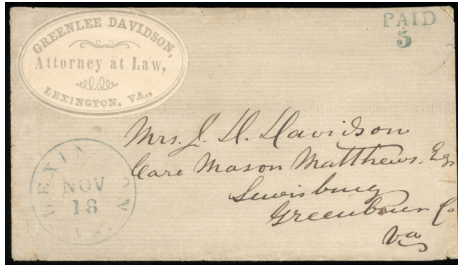 GREENLEE DAVIDSON,
Attorney at Law,
LEXINGTON, VA.,
PAID
5
Mrs. J. D. Davidson
Care Mason Matthews, Esq
Lewisburg
Greenbrier Co
Va
NOV
18